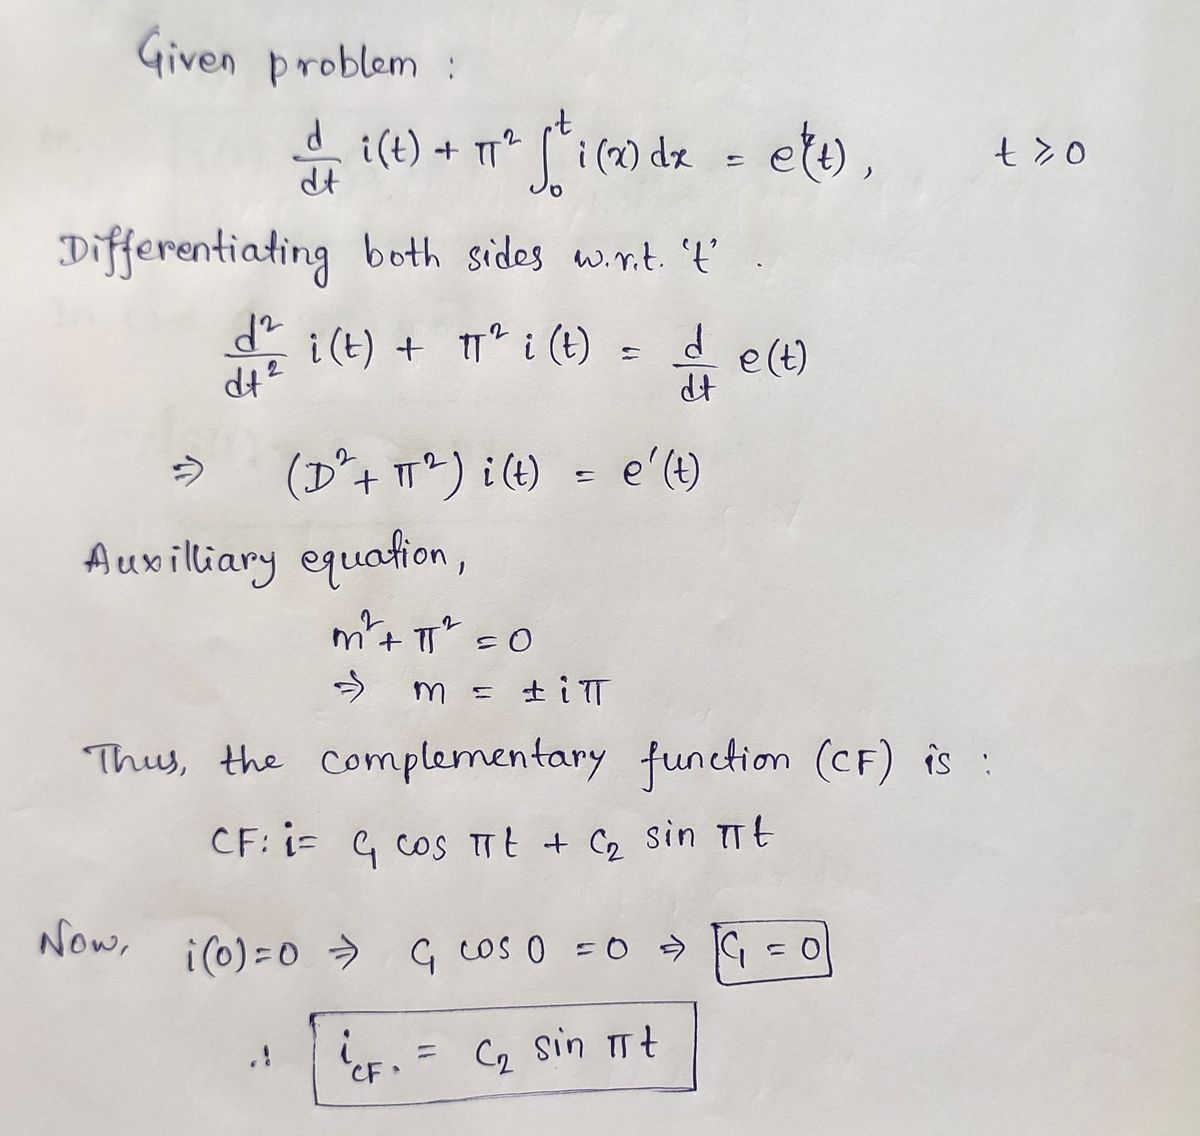 Given problem :
d/dt i(t) + π² ∫₀ᵗ i(x) dx = e(t), t ≥ 0
Differentiating both sides w.r.t. 't' .
d²/dt² i(t) + π² i(t) = d/dt e(t)
⇒ (D² + π²) i(t) = e'(t)
Auxilliary equation,
m² + π² = 0
⇒ m = ± i π
Thus, the complementary function (CF) is :
CF: i = C₁ cos πt + C₂ sin πt
Now, i(0) = 0 ⇒ C₁ cos 0 = 0 ⇒ C₁ = 0
∴ i_CF. = C₂ sin πt